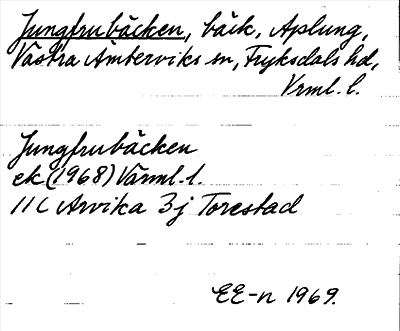 Jungfrubäcken, bäck, Aplung,
Västra Ämterviks sn, Fryksdals hd,
Vrml. l.
Jungfrubäcken
ek (1968) Värml. l.
11 C Arvika 3j Torestad
EE-n 1969.